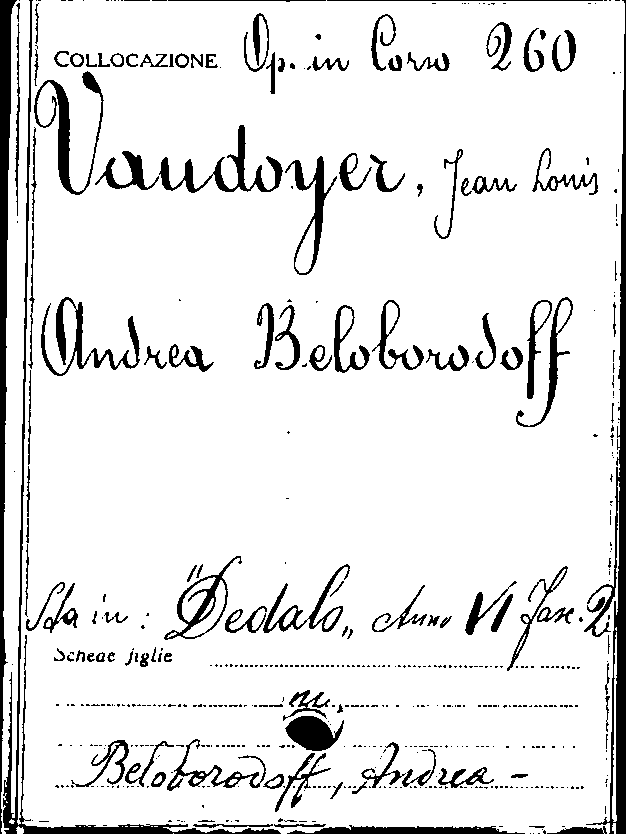 COLLOCAZIONE Op. in Corso 260
Vaudoyer, Jean Louis.
Andrea Beloborodoff
Sta in: "Dedalo„ Anno VI Fasc. 2
Schede figlie
Beloborodoff, Andrea -